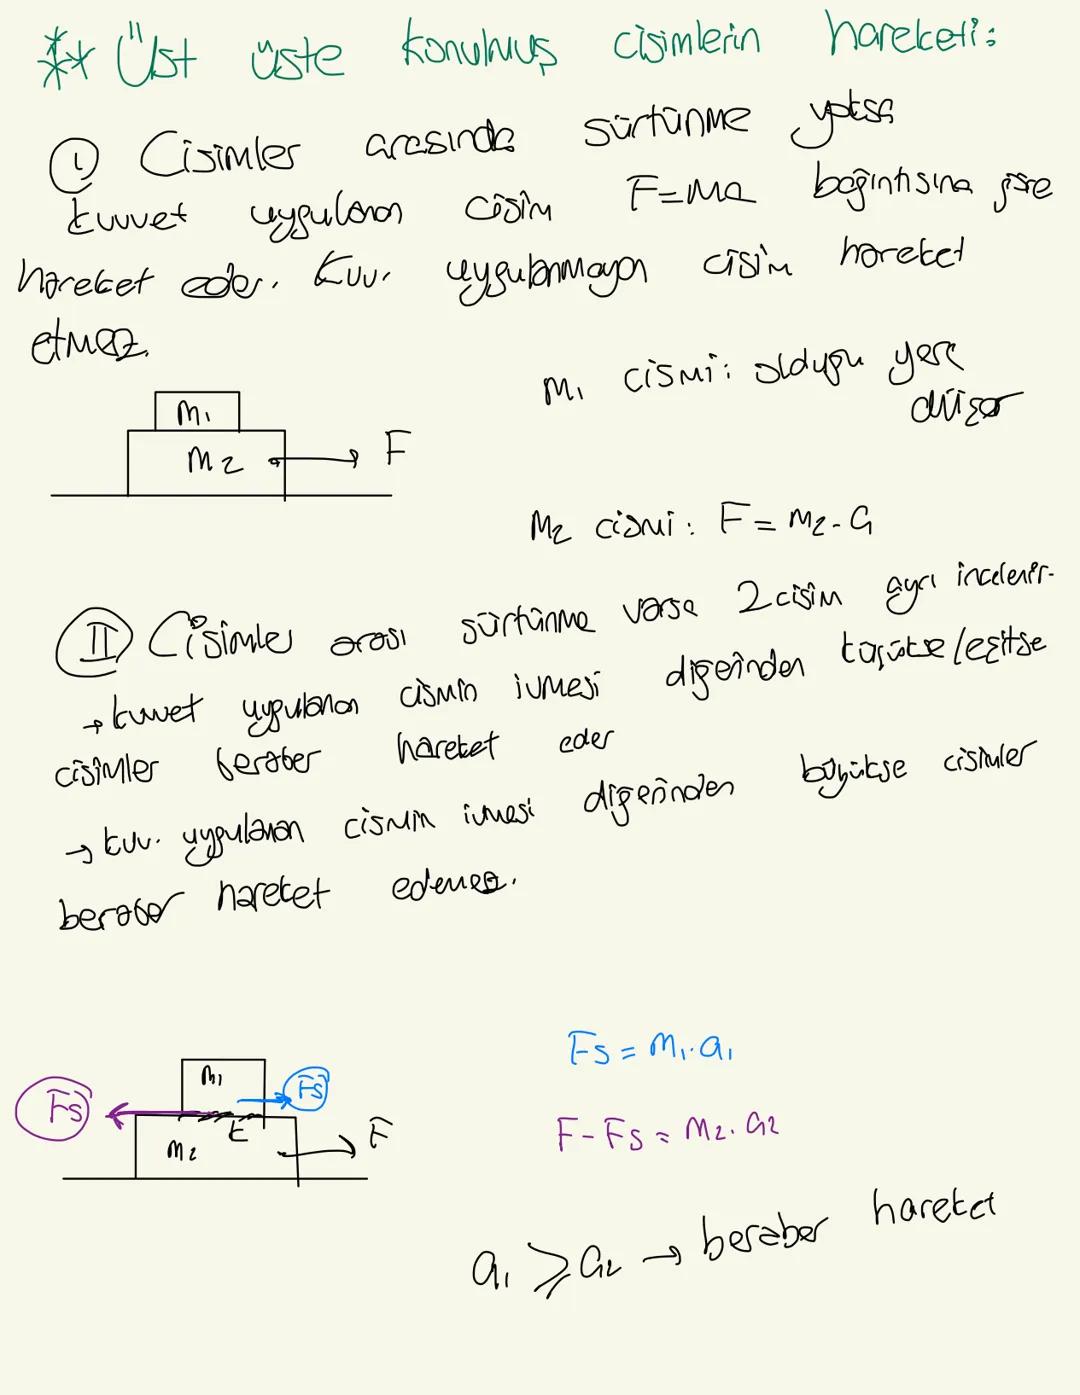 ** Üst üste konulmuş cisimlerin hareketi:
① Cisimler arasında sürtünme yoksa
kuvvet uygulanan cisim F=ma bağıntısına göre
hareket eder. Kuv. uygulanmayan cisim hareket
etmez.
m₁ cismi: olduğu yere
düşer
m₁
m₂
F
m₂ cismi: F = m₂.a
II Cisimler arası sürtünme varsa 2 cisim ayrı incelenir.
→ kuvvet uygulanan cismin ivmesi diğerinden küçükse/eşitse
cisimler beraber hareket eder
→ kuv. uygulanan cismin ivmesi diğerinden büyükse cisimler
beraber hareket edemez.
Fs = m₁.a₁
m₁
Fs
Fs
k
F
m₂
F-Fs = m₂.a₂
a₁ ⩾ a₂ → beraber hareket